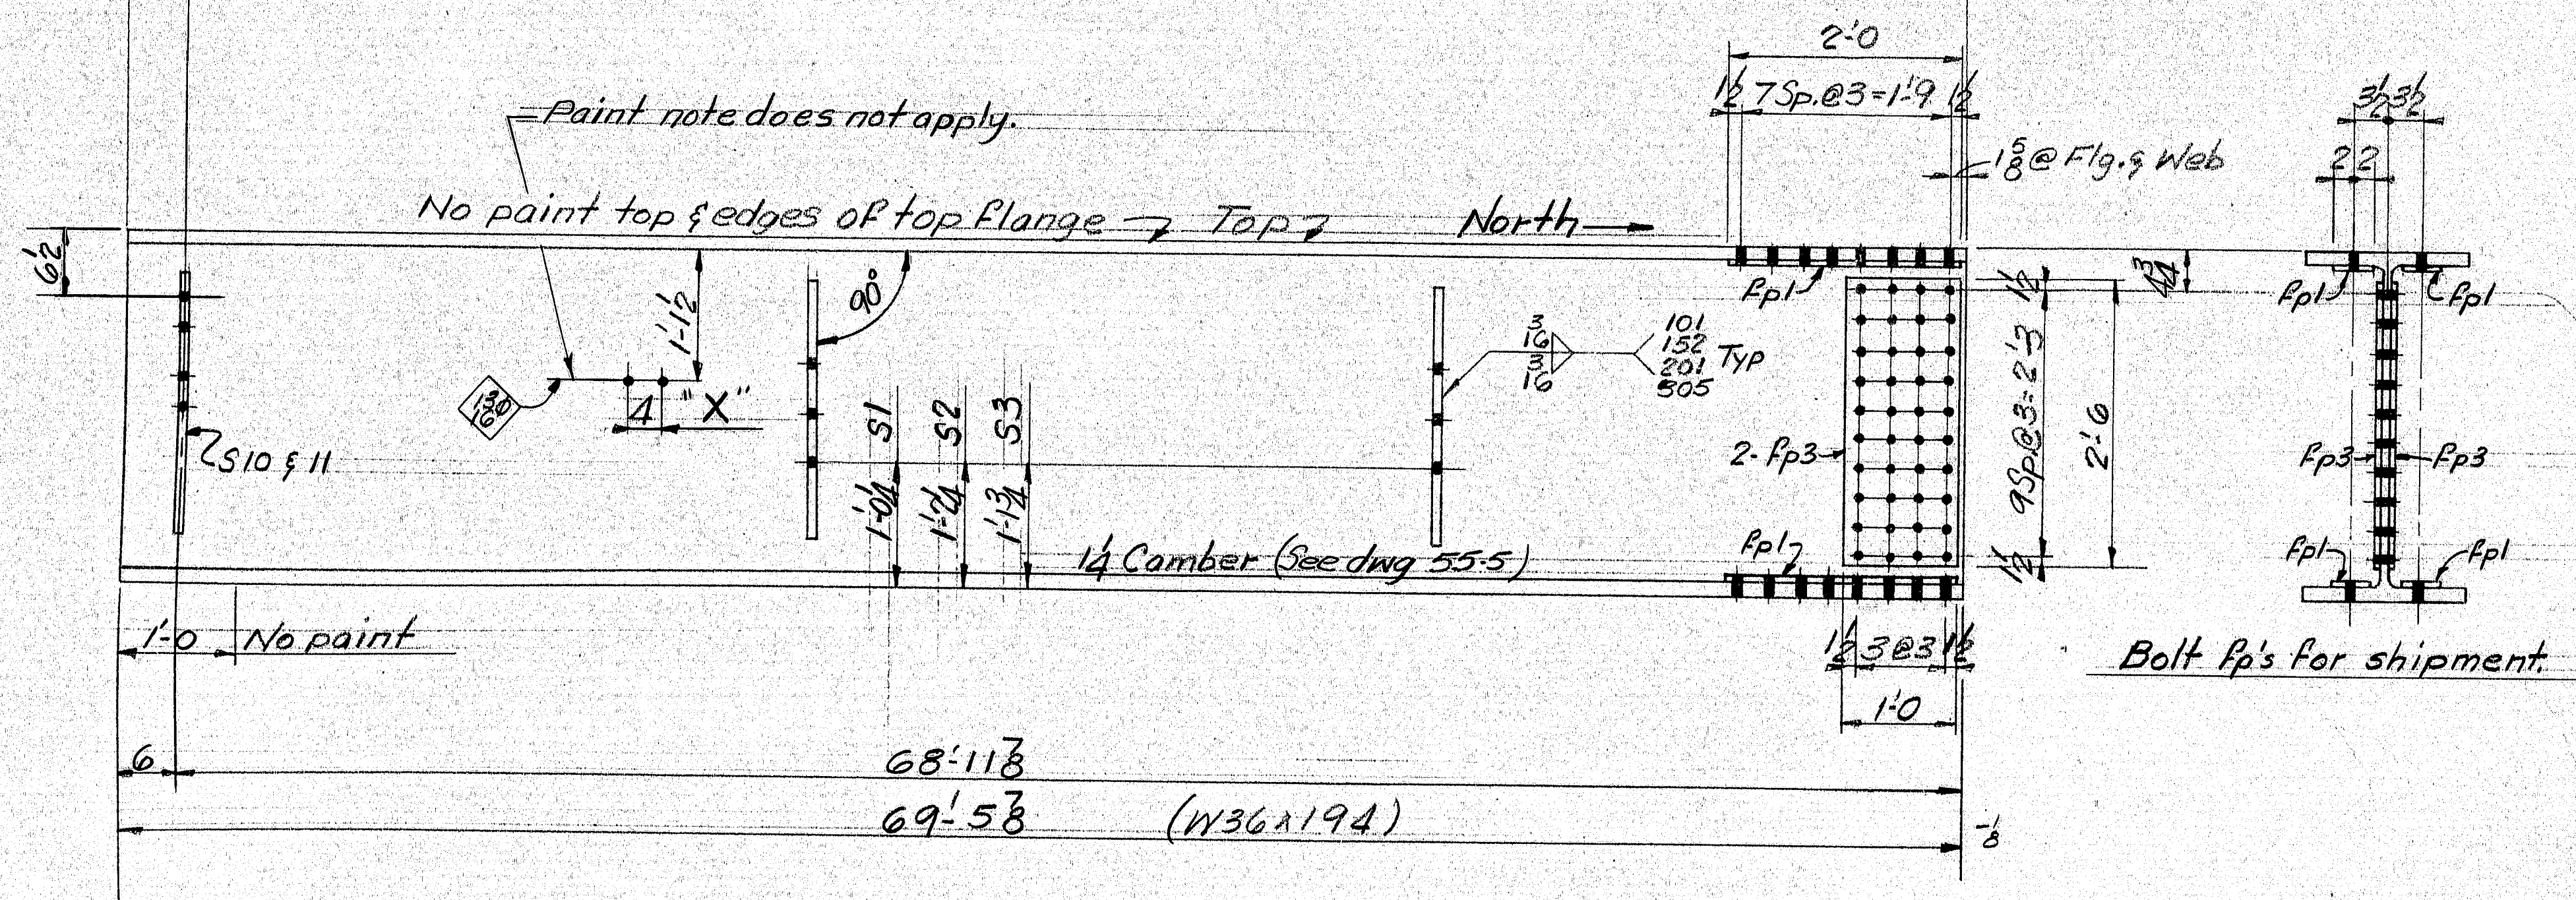 2'-0
1 1/2 7 Sp. @ 3 = 1'-9 1 1/2
3 1/2 3 1/2
Paint note does not apply.
1 5/8 @ Flg. & Web
2 2
No paint top & edges of top flange Top North
6 1/2
1'-1 1/2
90°
fp1
1 1/2
4 3/4
fp1 fp1
3/16
3/16
101
152
201
305
Typ
13/16 φ
4 "X"
S1 S2 S3
S10 & 11
2-fp3
9 Sp. @ 3 = 2'-3
2'-6
fp3 fp3
1'-0 1/4 1'-2 1/4 1'-1 3/4
1 1/4 Camber (See dwg 55-5)
fp1
1 1/2
fp1 fp1
1'-0 No paint
1 1/2 3 @ 3 1 1/2
Bolt fp's for shipment.
1'-0
6 68'-11 7/8
69'-5 7/8 (W36x194)
-1/8